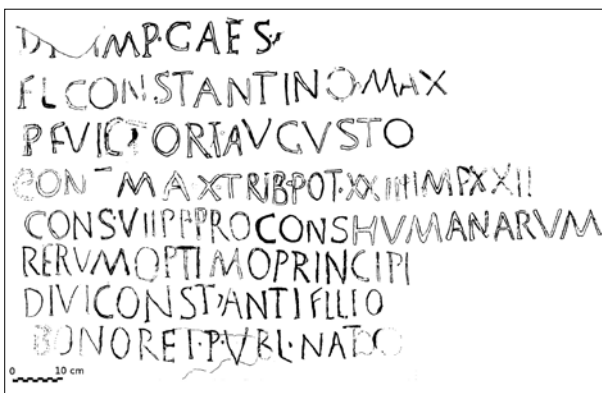 IMP·CAES·
FL CONSTANTINO·MAX
P F VICTORI·AVGVSTO
MAX·TRIB·POT·XXIIII IMP XXII
CONS VII P P PROCONS HVMANARVM
RERVM OPTIMO PRINCIPI
DIVI CONSTANTI FILIO
BONO REI·P·VBL·NATO
0 10 cm